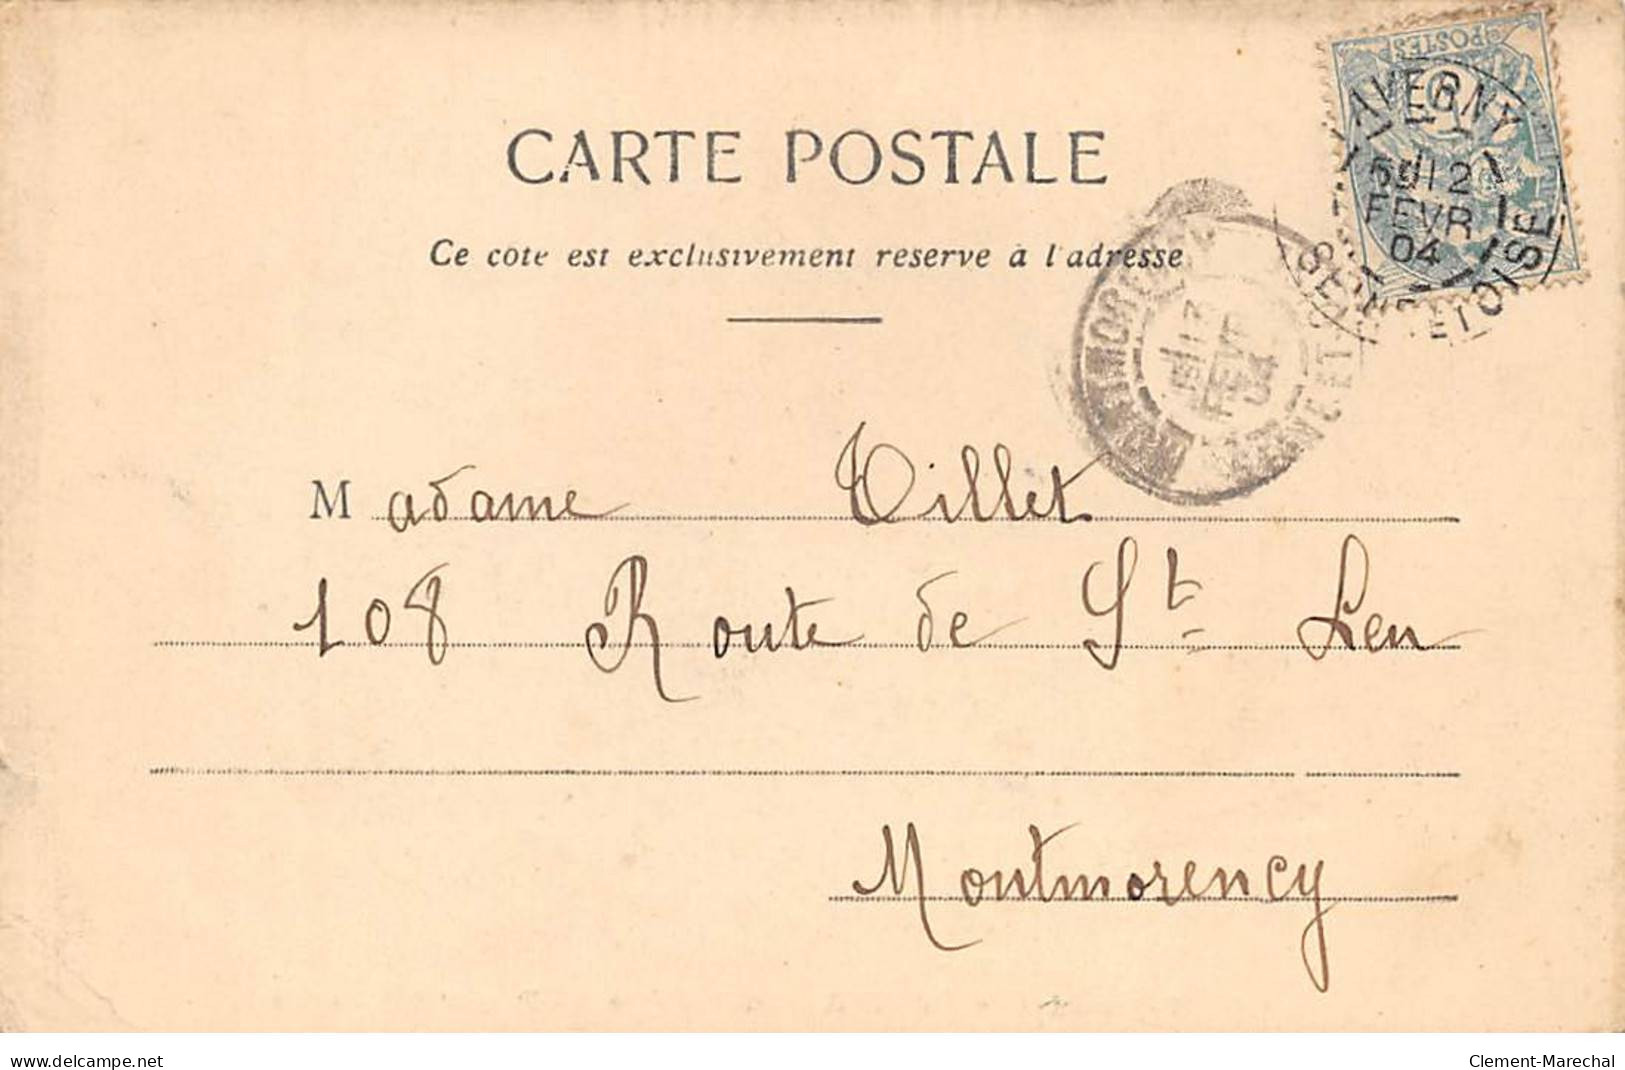 CARTE POSTALE
Ce coté est exclusivement reservé à l'adresse
POSTES
TAVERNY
5E 12
FEVR
04
SEINE-ET-OISE
13
FEVR
04
Madame Tillet
108 Route de St Leu
Montmorency
www.delcampe.net
Clement-Marechal